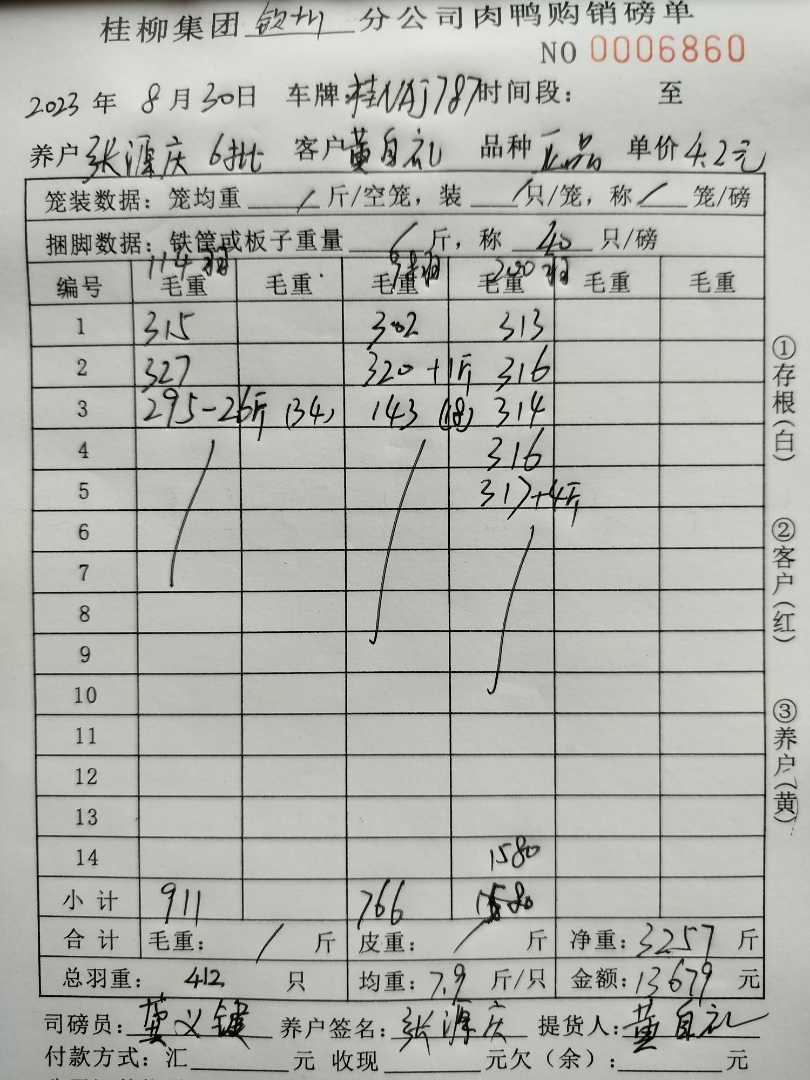 桂柳集团 钦州 分公司肉鸭购销磅单
NO 0006860
2023 年 8 月 30 日 车牌: 桂NAJ787 时间段: 至
养户 张源庆 6批 客户 黄自礼 品种 正品 单价 4.2元
笼装数据: 笼均重 / 斤/空笼, 装 / 只/笼, 称 / 笼/磅
捆脚数据: 铁筐或板子重量 / 斤, 称 40 只/磅
114羽 98羽 200羽
编号 毛重 毛重 毛重 毛重 毛重 毛重
1 315 302 313
2 327 320+1斤 316
3 295-26斤 (34) 143 (18) 314
4 316
5 317+4斤
6
7
8
9
10
11
12
13
14 1580
小计 911 766 1580
合计 毛重: / 斤 皮重: / 斤 净重: 3257 斤
总羽重: 412 只 均重: 7.9 斤/只 金额: 13679 元
司磅员: 龚义键 养户签名: 张源庆 提货人: 黄自礼
付款方式: 汇 元 收现 元欠(余): 元
①存根(白)
②客户(红)
③养户(黄)